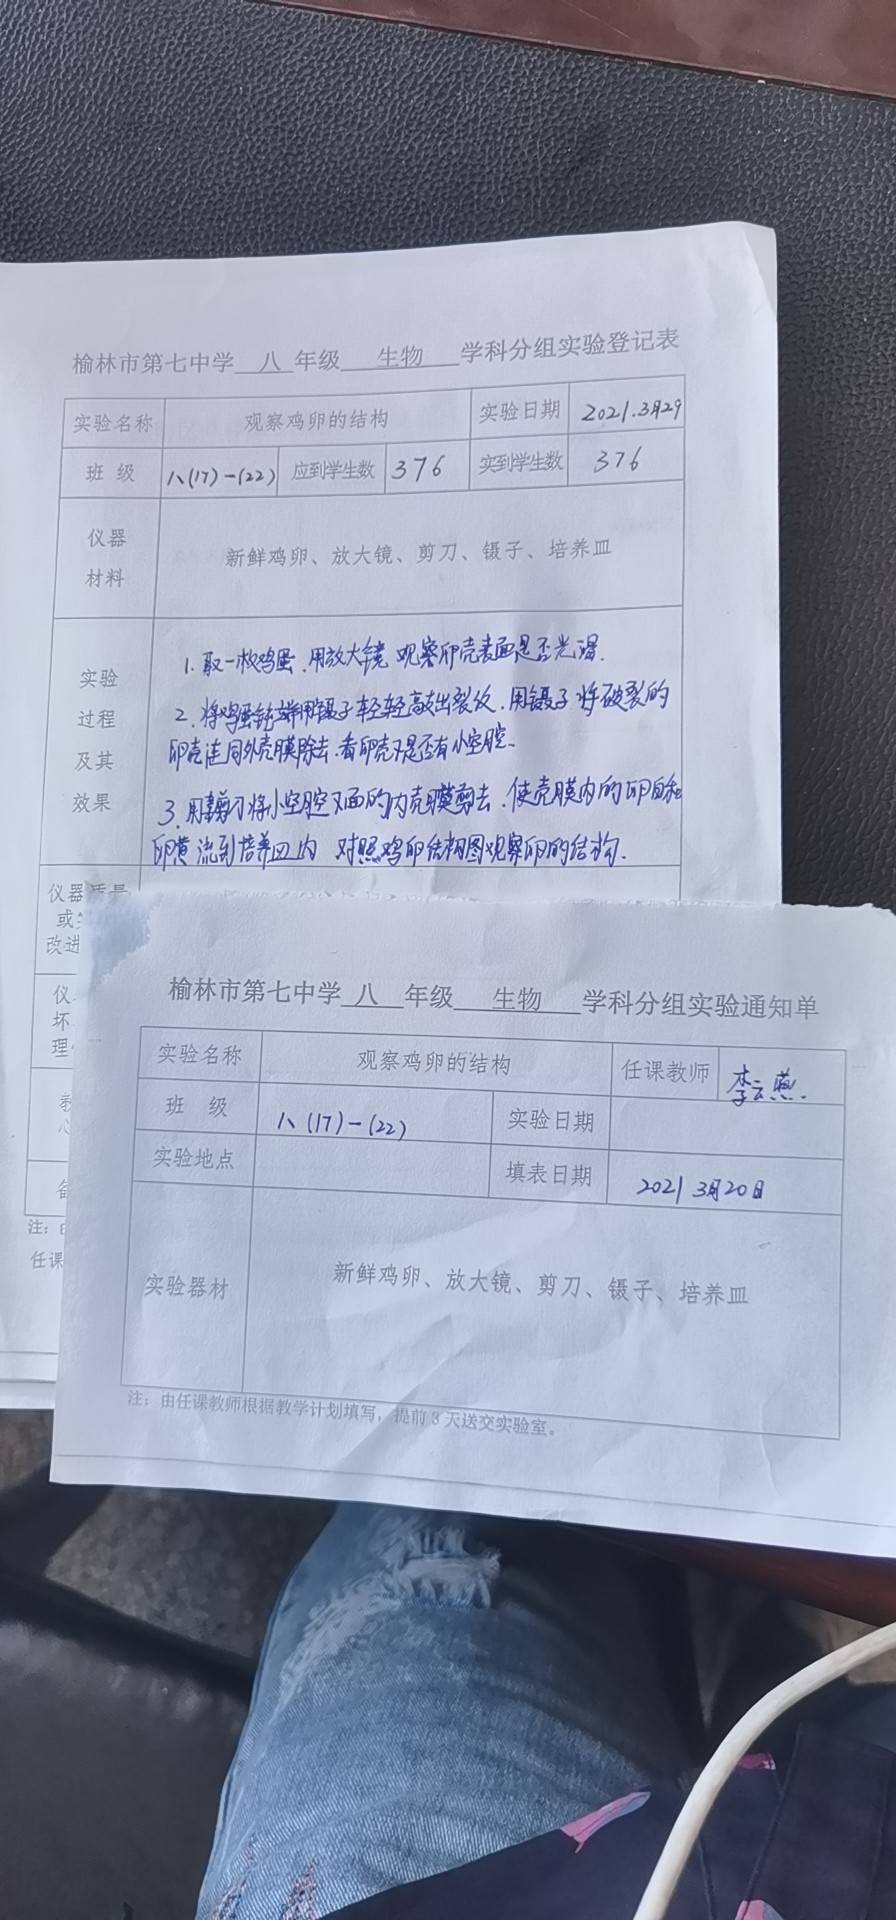 榆林市第七中学 八 年级 生物 学科分组实验登记表
实验名称 观察鸡卵的结构 实验日期 2021.3月29
班 级 八(17)-(22) 应到学生数 376 实到学生数 376
仪器
材料
新鲜鸡卵、放大镜、剪刀、镊子、培养皿
实验
过程
及其
效果
1. 取一枚鸡蛋.用放大镜 观察卵壳表面是否光滑.
2. 将鸡蛋钝端用镊子轻轻敲出裂纹.用镊子将破裂的
卵壳连同外壳膜除去.看卵壳下是否有小空腔.
3. 用剪刀将小空腔下面的内壳膜剪去.使壳膜内的卵白和
卵黄流到培养皿内 对照鸡卵结构图观察卵的结构.
仪器质量
或
改进
仪
坏
理
教
心
备
注:
任课
榆林市第七中学 八 年级 生物 学科分组实验通知单
实验名称 观察鸡卵的结构 任课教师 李云燕.
班 级 八(17)-(22) 实验日期
实验地点 填表日期 2021 3月20日
实验器材 新鲜鸡卵、放大镜、剪刀、镊子、培养皿
注:由任课教师根据教学计划填写,提前3天送交实验室。